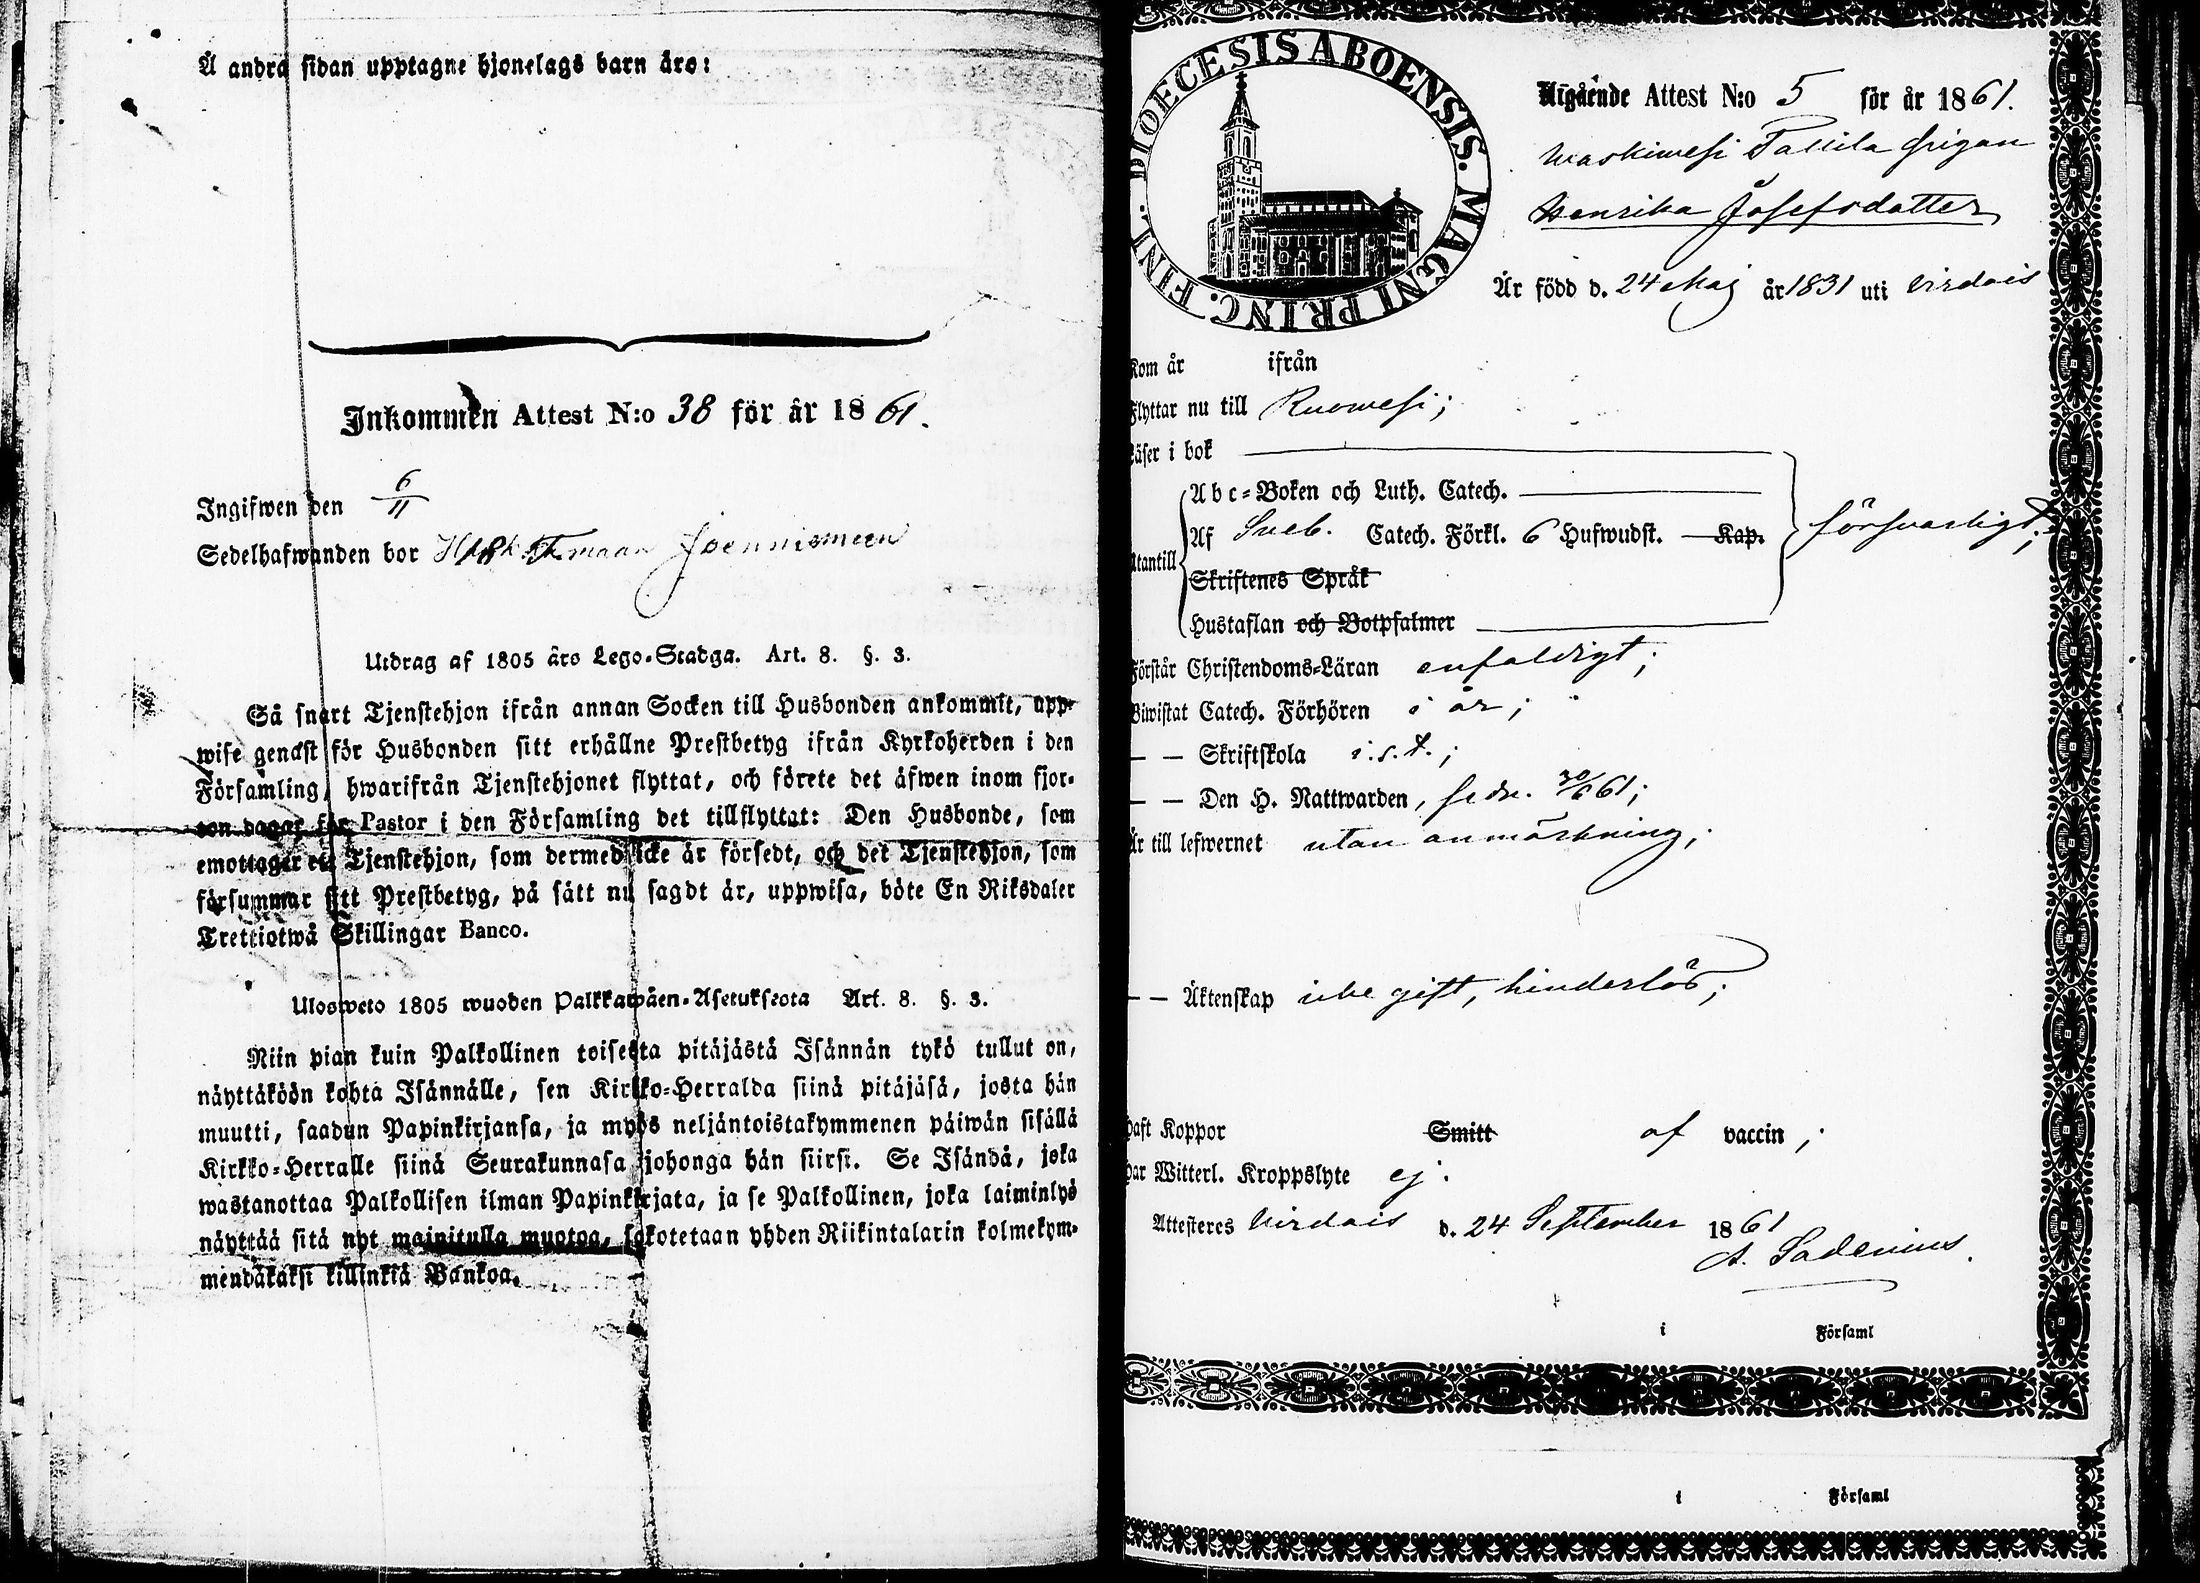 Å andra sidan upptagne hjonelags barn äro:
Inkommen Attest N:o 38 för år 1861.
Ingifwen den 6/11
Sedelhafwanden bor
Utdrag af 1805 års Lego-Stadga. Art. 8. §. 3.
Så snart Tjenstehjon ifrån annan Socken till Husbonden ankommit, upp-
wise genast för Husbonden sitt erhållne Prestbetyg ifrån Kyrkoherden i den
Församling, hwarifrån Tjenstehjonet flyttat, och förete det äfwen inom fjor-
ton dagar för Pastor i den Församling det tillflyttat: Den Husbonde, som
emottager ett Tjenstehjon, som dermed icke är försedt, och det Tjenstehjon, som
försummar sitt Prestbetyg, på sätt nu sagdt är, uppwisa, böte En Riksdaler
Trettiotwå Skillingar Banco.
Ulosweto 1805 wuoden Palkkawäen-Asetuksesta Art. 8. §. 3.
Niin pian kuin Palkollinen toisesta pitäjästä Isännän tykö tullut on,
näyttäköön kohta Isännälle, sen Kirkko-Herralda siinä pitäjäsä, josta hän
muutti, saadun Papinkirjansa, ja myös neljäntoistakymmenen päiwän sisällä
Kirkko-Herralle siinä Seurakunnasa johonga hän siirsi. Se Isändä, joka
wastanottaa Palkollisen ilman Papinkirjata, ja se Palkollinen, joka laiminlyö
näyttää sitä nyt mainitulla muotoa, sakotetaan yhden Riikintalarin kolmekym-
mendäkaksi killinkiä Bankoa.
DIOECESIS ABOENSIS. MAGNI PRINC. FINL.
Utgående Attest N:o 5 för år 1861.
Waskiwesi Pallila pigan
Henrika Josefsdotter
Är född d. 24 Maj år 1831 uti Virdois
Kom år ifrån
Flyttar nu till Ruowesi;
Läser i bok
Abc-Boken och Luth. Catech.
Af Sveb. Catech. Förkl. 6 Hufwudst. Kap. försvarligt;
Utantill
Skriftenes Språk
Hustaflan och Botpsalmer
Förstår Christendoms-Läran enfaldigt;
Biwistat Catech. Förhören i år;
— — Skriftskola i.s.t.;
— — Den H. Nattwarden, sedn. 30/6 61;
Är till lefwernet utan anmärkning;
— — Äktenskap icke gift, hinderlös;
Haft Koppor Smitt af vaccin;
Har Witterl. Kroppslyte ej.
Attesteres Virdois d. 24 September 1861
A. Sadenius.
i Församl
i Församl